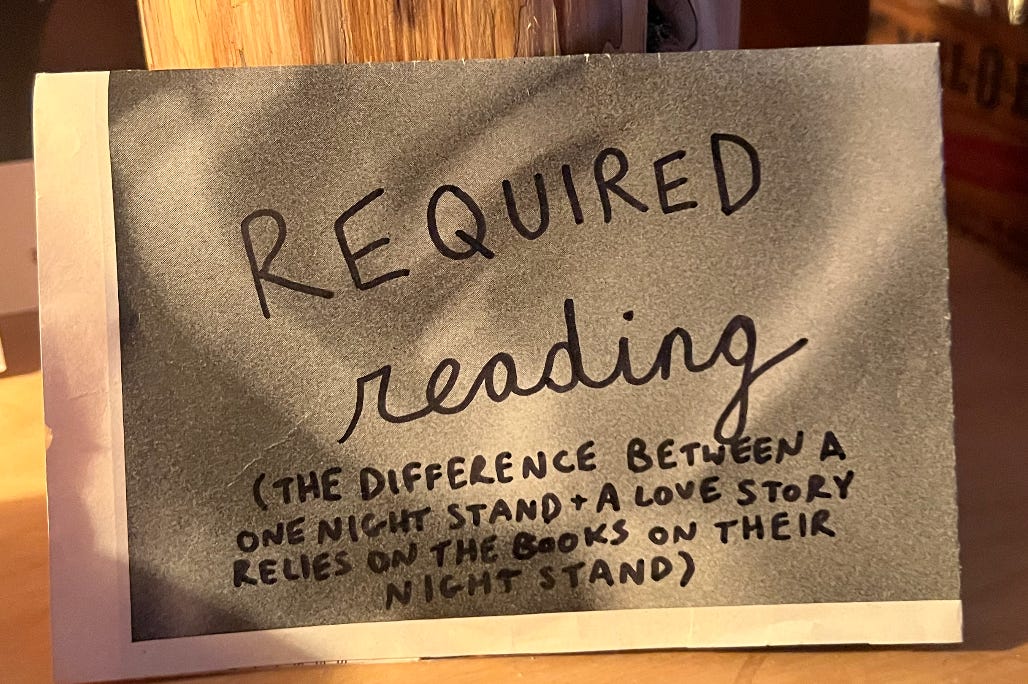 REQUIRED
reading
(THE DIFFERENCE BETWEEN A
ONE NIGHT STAND + A LOVE STORY
RELIES ON THE BOOKS ON THEIR
NIGHT STAND)